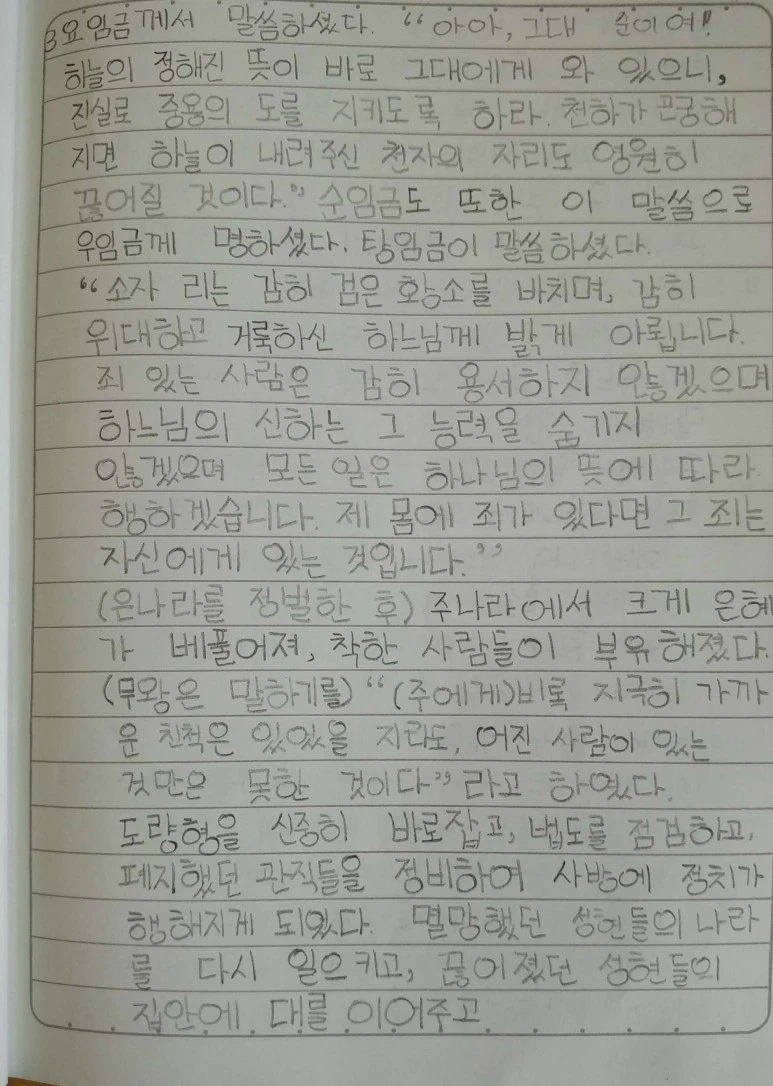 3요임금께서 말씀하셨다. “아아, 그대 순이여!
하늘의 정해진 뜻이 바로 그대에게 와 있으니,
진실로 중용의 도를 지키도록 하라. 천하가 곤궁해
지면 하늘이 내려주신 천자의 자리도 영원히
끊어질 것이다.” 순임금도 또한 이 말씀으로
우임금께 명하셨다. 탕임금이 말씀하셨다.
“소자 리는 감히 검은 황소를 바치며, 감히
위대하고 거룩하신 하느님께 밝게 아룁니다.
죄 있는 사람은 감히 용서하지 않겠으며
하느님의 신하는 그 능력을 숨기지
않겠으며 모든 일은 하나님의 뜻에 따라
행하겠습니다. 제 몸에 죄가 있다면 그 죄는
자신에게 있는 것입니다.”
(은나라를 정벌한 후) 주나라에서 크게 은혜
가 베풀어져, 착한 사람들이 부유해졌다.
(무왕은 말하기를) “(주에게)비록 지극히 가까
운 친척은 있었을 지라도, 어진 사람이 있는
것만은 못한 것이다” 라고 하였다.
도량형을 신중히 바로잡고, 법도를 점검하고,
폐지했던 관직들을 정비하여 사방에 정치가
행해지게 되었다. 멸망했던 성현들의 나라
를 다시 일으키고, 끊어졌던 성현들의
집안에 대를 이어주고